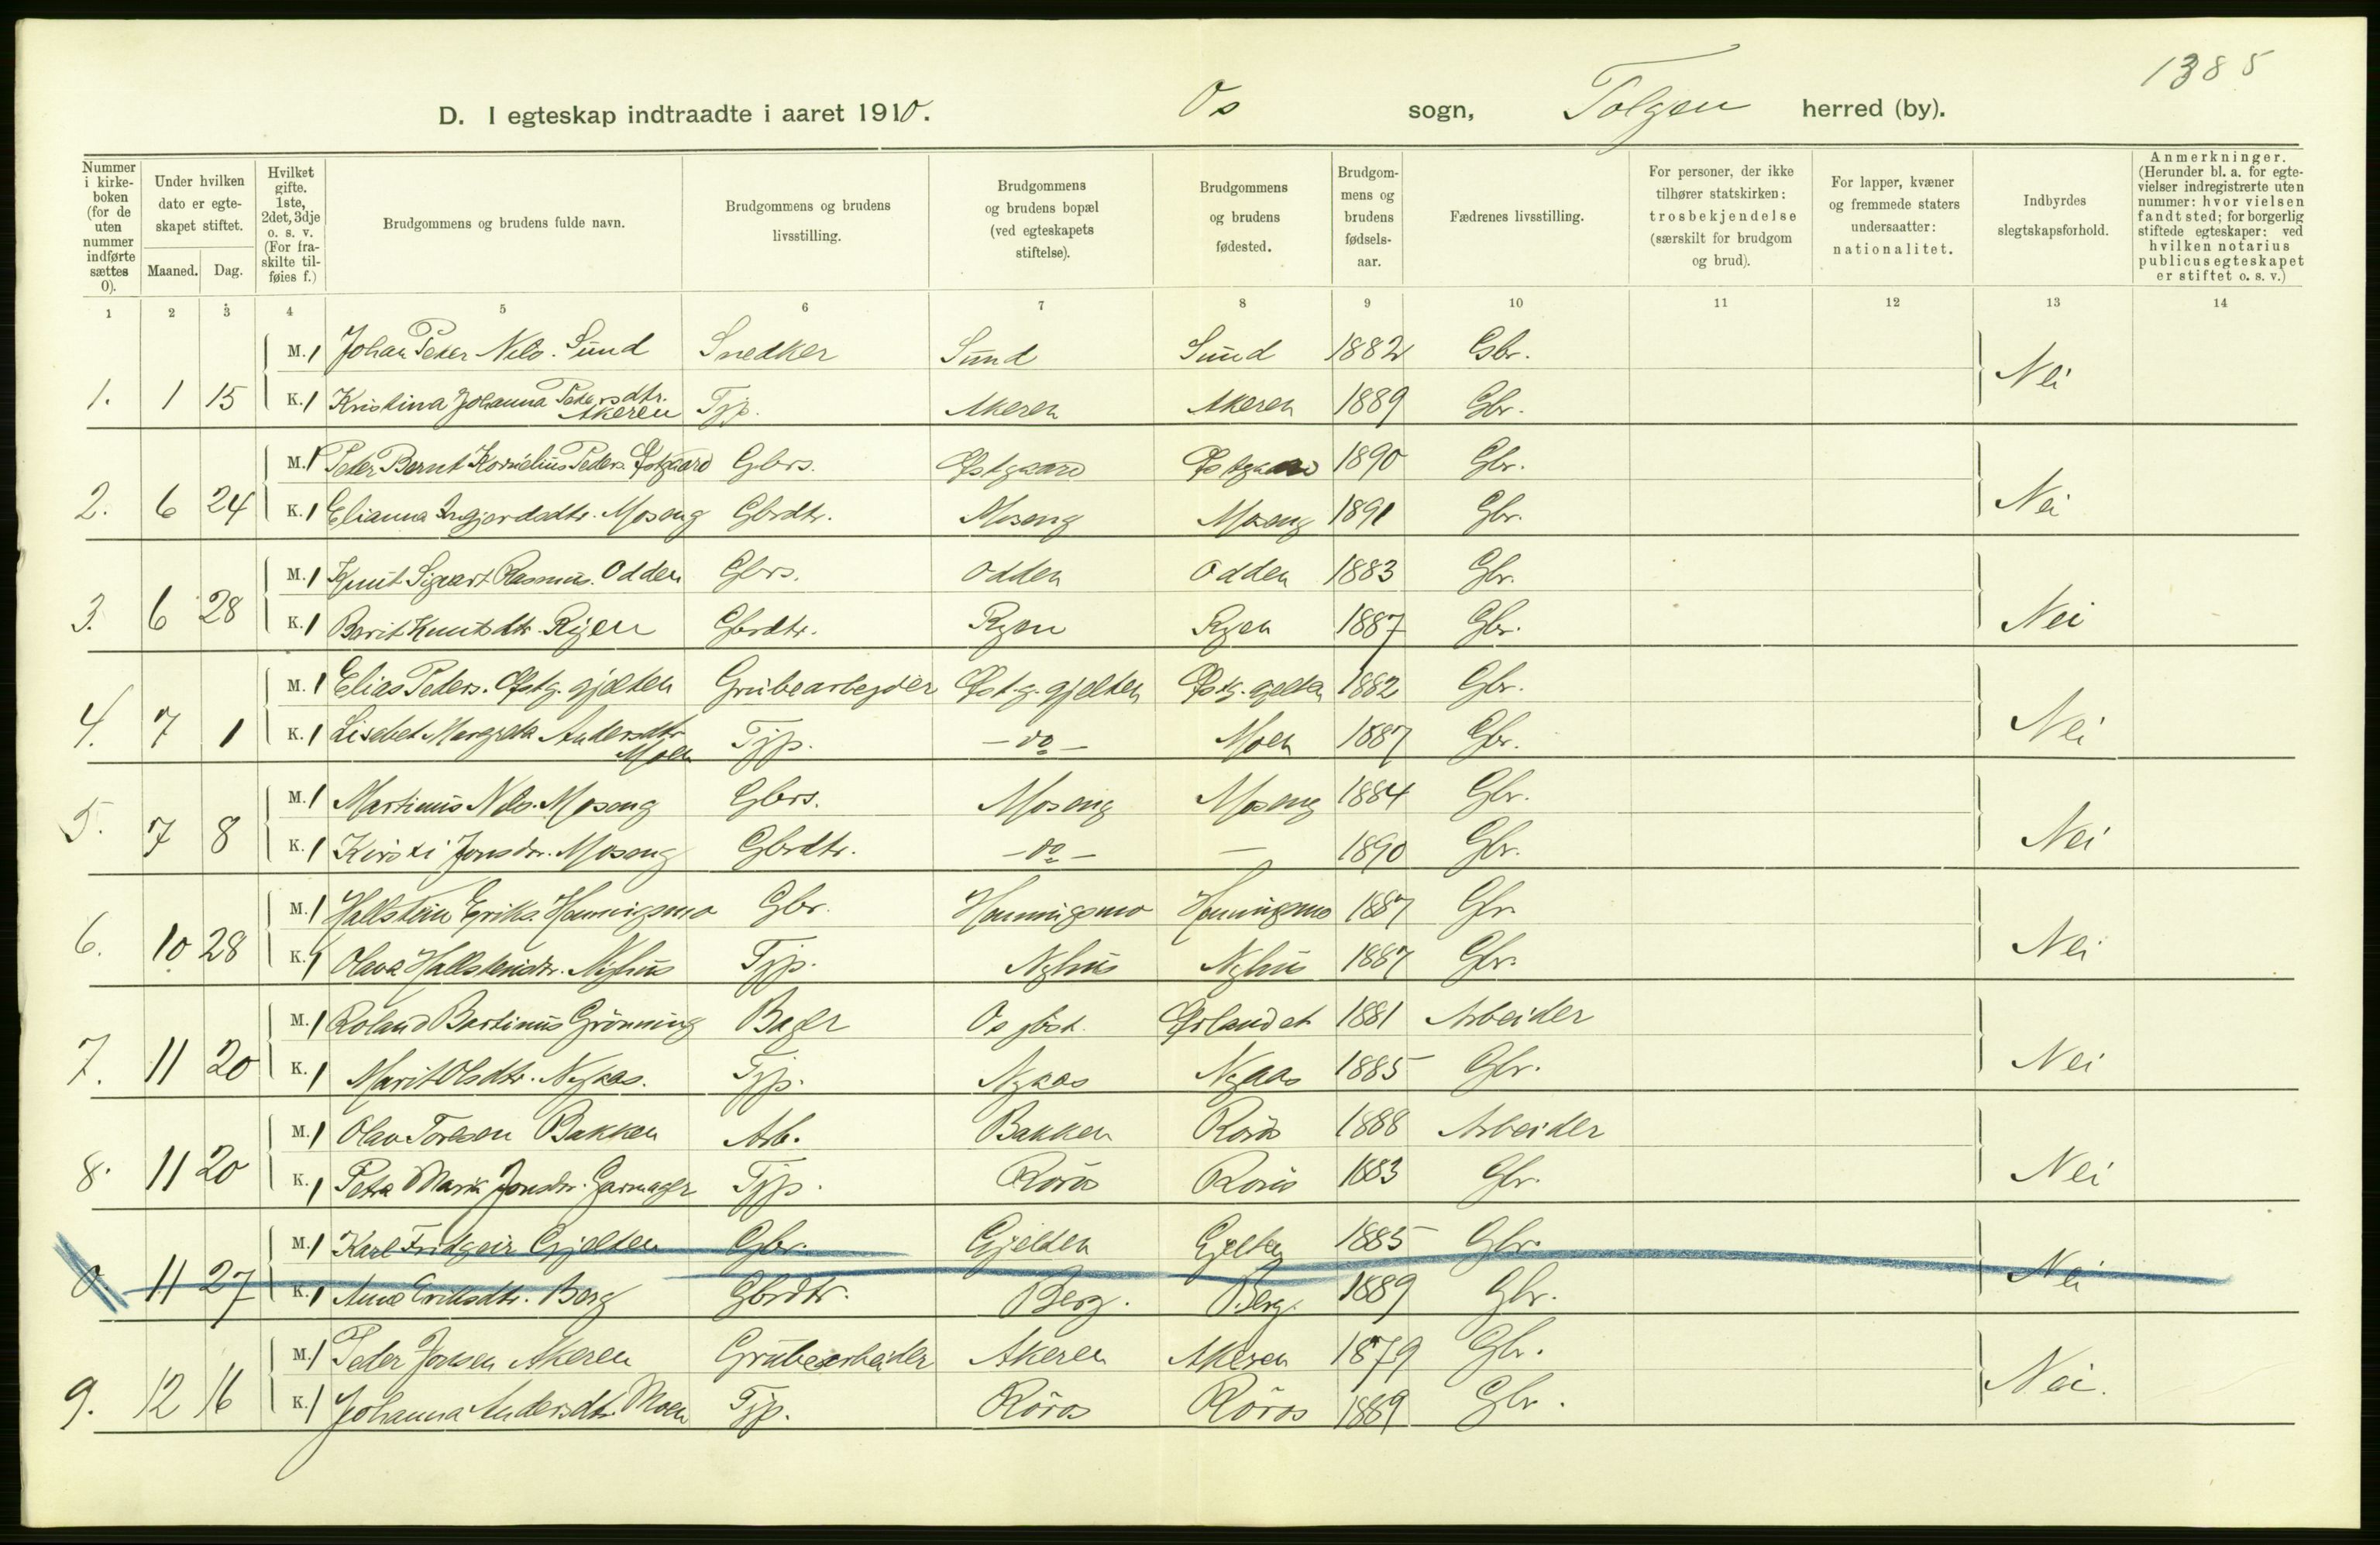 1385
D. I egteskap indtraadte i aaret 1910. Os sogn, Tolgen herred (by).
Nummer i kirkeboken (for de uten nummer indførte sættes 0).
Under hvilken dato er egteskapet stiftet.
Maaned. Dag.
Hvilket gifte. 1ste, 2det, 3dje o. s. v. (For fraskilte tilføies f.)
Brudgommens og brudens fulde navn.
Brudgommens og brudens livsstilling.
Brudgommens og brudens bopæl (ved egteskapets stiftelse).
Brudgommens og brudens fødested.
Brudgommens og brudens fødselsaar.
Fædrenes livsstilling.
For personer, der ikke tilhører statskirken: trosbekjendelse (særskilt for brudgom og brud).
For lapper, kvæner og fremmede staters undersaatter: nationalitet.
Indbyrdes slegtskapsforhold.
Anmerkninger. (Herunder bl. a. for egtevielser indregistrerte uten nummer: hvor vielsen fandt sted; for borgerlig stiftede egteskaper: ved hvilken notarius publicus egteskapet er stiftet o. s. v.)
1 2 3 4 5 6 7 8 9 10 11 12 13 14
M. 1 Johan Peter Nils. Sund Snedker Sund Sund 1882 Gbr.
1. 1 15 K. 1 Kristina Johanna Petersdtr. Akeren Tjp. Akeren Akeren 1889 Gbr. Nei
M. 1 Peder Bernt Kornelius Peders. Østgaard Gbrs. Østgaard Østgaard 1890 Gbr.
2. 6 24 K. 1 Elianna Ingjerdsdtr. Moseng Gbrdtr. Moseng Moseng 1891 Gbr. Nei
M. 1 Knut Sigvart Rasmus. Odden Gbrs. Odden Odden 1883 Gbr.
3. 6 28 K. 1 Berit Knutsdtr. Ryen Gbrdtr. Ryen Ryen 1887 Gbr. Nei
M. 1 Elias Peders. Østg. gjelten Grubearbeyder Øst.g. gjelten Østg. gjelten 1882 Gbr.
4. 7 1 K. 1 Lisebet Margreta Andersdtr Moen Tjp. — do — Moen 1887 Gbr. Nei
M. 1 Martinus Nils. Moseng Gbrs. Moseng Moseng 1884 Gbr.
5. 7 8 K. 1 Kirsti Jonsdtr. Moseng Gbrdtr. — do — — 1890 Gbr. Nei
M. 1 Hallstein Eriks. Hummigsmo Gbr. Hummigsmo Hummigsmo 1887 Gbr.
6. 10 28 K. 1 Olava Hallsteinsdtr. Nyhus Tjp. Nyhus Nyhus 1887 Gbr. Nei
M. 1 Roland Bartinus Grönning Bager Os Ørlandet 1881 Arbeider
7. 11 20 K. 1 Marit Olsdtr. Nyaas. Tjp. Nyaas Nyaas 1885 Gbr. Nei
M. 1 Olav Toresen Bakken Arb. Bakken Röros 1888 Arbeider
8. 11 20 K. 1 Petra Marie Jonsdtr. Garmager Tjp. Röros Röros 1883 Gbr. Nei
M. 1 Karl Fridgeir Gjelten Gbr. Gjelten Gjelten 1885 Gbr.
0. 11 27 K. 1 Anne Eriksdtr. Berg Gbrdtr. Berg. Berg. 1889 Gbr. Nei
M. 1 Peder Jonsen Akeren Grubearbeider Akeren Akeren 1879 Gbr.
9. 12 16 K. 1 Johanna Andersdtr. Moen Tjp. Röros Röros 1889 Gbr. Nei.